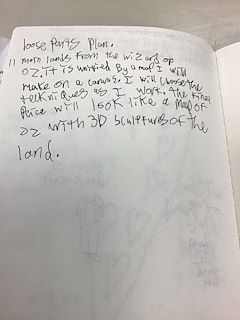 loose parts plan.
11 main lands from the wizard of
oz, it is unified by a map I will
make on a canvas. I will choose the
teckniques as I work. the final
peice will look like a map of
oz with 3D sculptures of the
land.